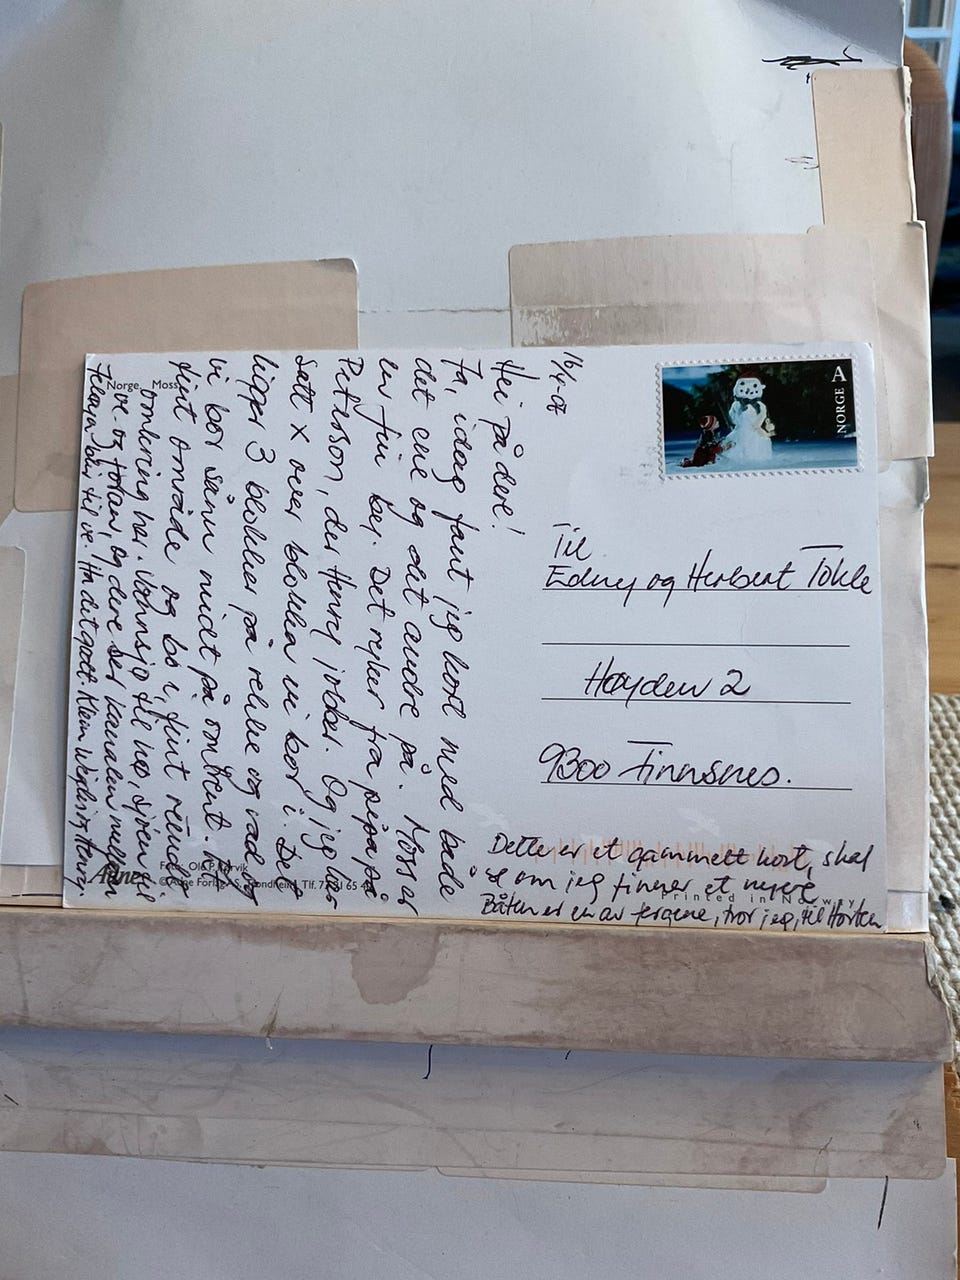 16/4-07
Hei på dere!
Ja, idag fant jeg kort med både
det ene og det andre på. Moss er
en fin by. Det ryker fra pipa på
Peterson, der Henry jobber. Og jeg har
satt x over blokka vi bor i. Det
ligger 3 blokker på rekke og rad
vi bor sånn midt på omtrent. Et
fint område og bo i, fint
omkring her. Vannsjø til
ve og og dere ser kanalen mellom
Jeløya til ve. Ha det godt. Klem Henry
Norge, Moss
Foto: Ole P. Rørvik
Aune
© Aune Forlag AS, Trondheim, Tlf. 73 81 65
NORGE A
Til
Edny og Herbert Tokle
Høyden 2
9300 Finnsnes.
Dette er et gammelt kort, skal
se om jeg finner et nyere
Printed in Norway
Båten er en av fergene, tror jeg, til Horten